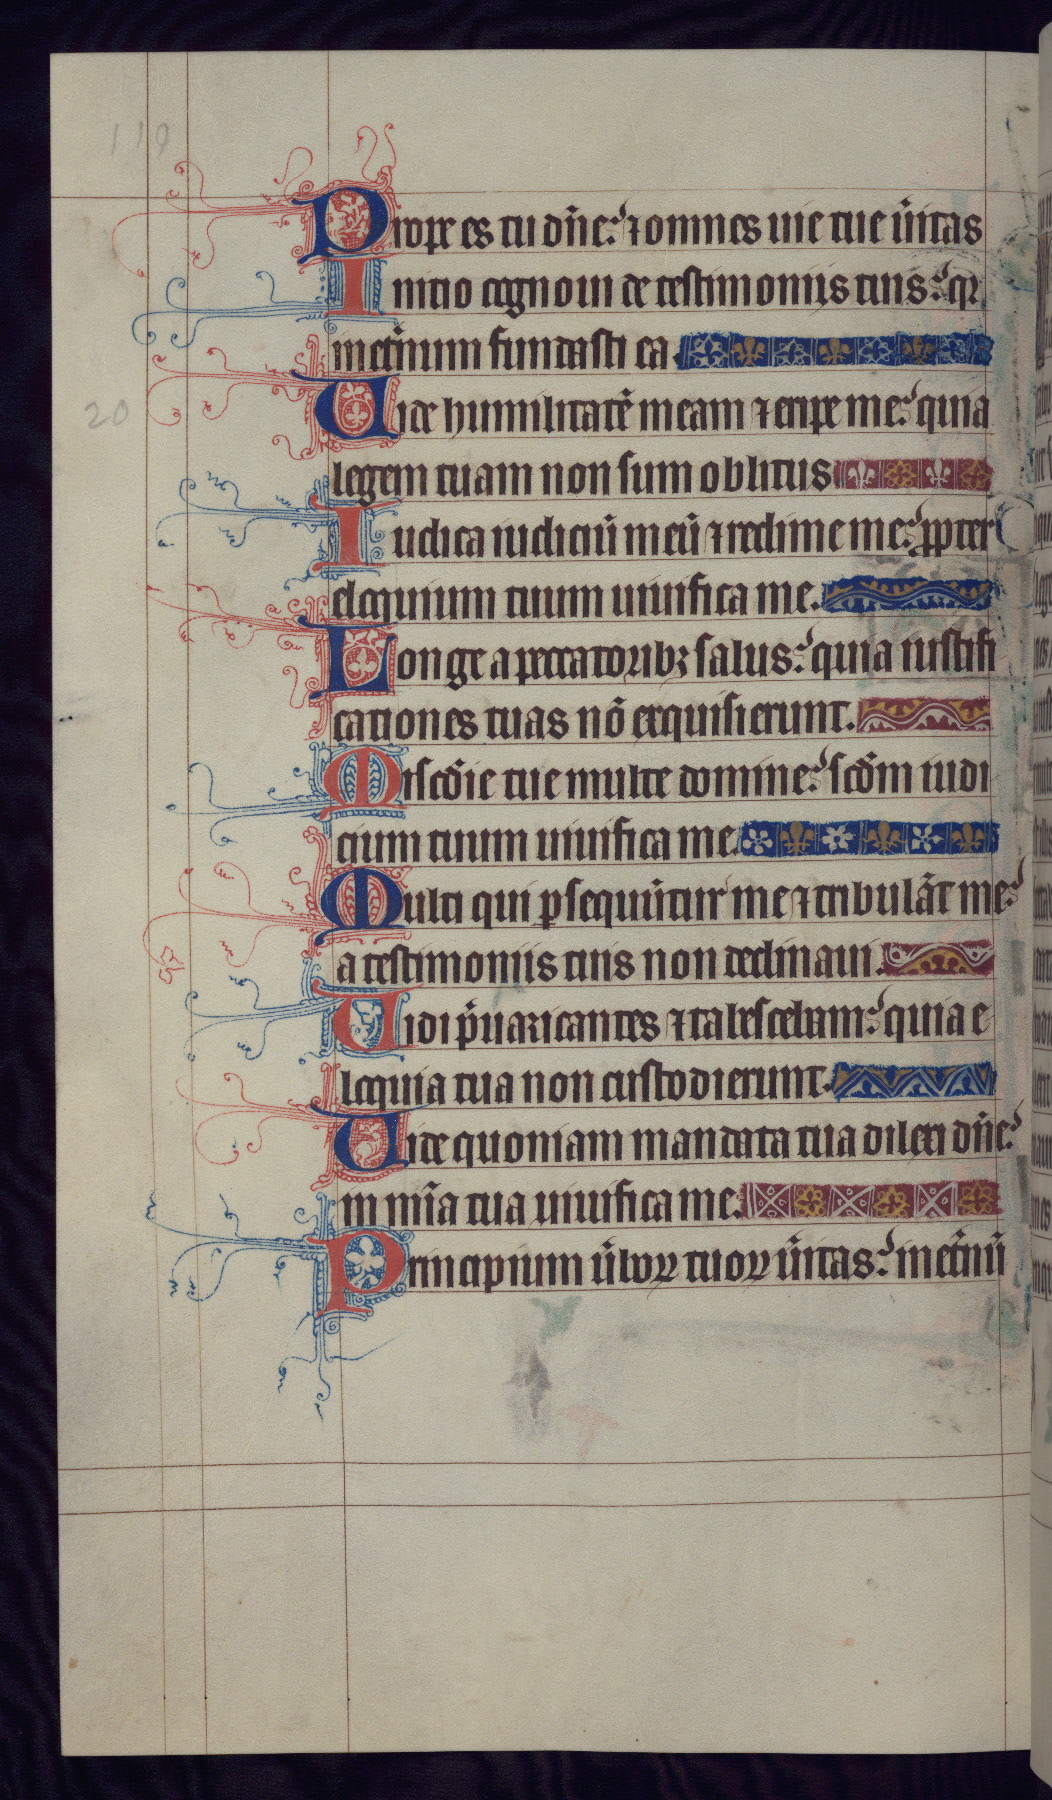 119
Prope es tu dñe: ⁊ omnes uie tue ũitas
Initio cognoui de testimoniis tuis: qꝛ
inet̃num fundasti ea
20
Uide humilitatẽ meam ⁊ eripe me: quia
legem tuam non sum oblitus
Iudica iudiciũ meũ ⁊ redime me: ꝓpter
eloquium tuum uiuifica me.
Longe a peccatoribꝫ salus: quia iustifi
cationes tuas nõ exquisierunt.
Miscõie tue multe domine: scõm iudi
cium tuum uiuifica me.
Multi qui ꝑsequũtur me ⁊ tribulãt me:
a testimoniis tuis non declinaui.
Uidi p̃uaricantes ⁊ tabescebam: quia e
loquia tua non custodierunt.
Uide quoniam mandata tua dilexi dñe:
in mĩa tua uiuifica me.
Principium ũboꝝ tuoꝝ ũitas: inet̃nũ